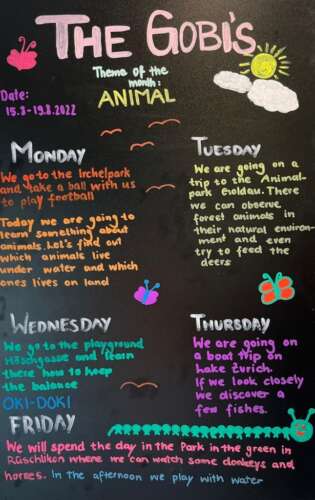 THE GOBI'S
Theme of the
month:
ANIMAL
Date:
15.8-19.8.2022
MONDAY
We go to the Irchelpark
and take a ball with us
to play football
Today we are going to
learn something about
animals. Let's find out
which animals live
under water and which
ones lives on land
TUESDAY
We are going on a
trip to the Animal-
park Goldau. There
we can observe
forest animals in
their natural environ-
ment and even
try to feed the
deers
WEDNESDAY
We go to the playground
Höschgasse and train
there how to keep
the balance
OKI-DOKI
THURSDAY
We are going on
a boat trip on
Lake Zurich.
If we look closely
we discover a
few fishes.
FRIDAY
We will spend the day in the Park in the green in
Rüschlikon where we can watch some donkeys and
horses. In the afternoon we play with water